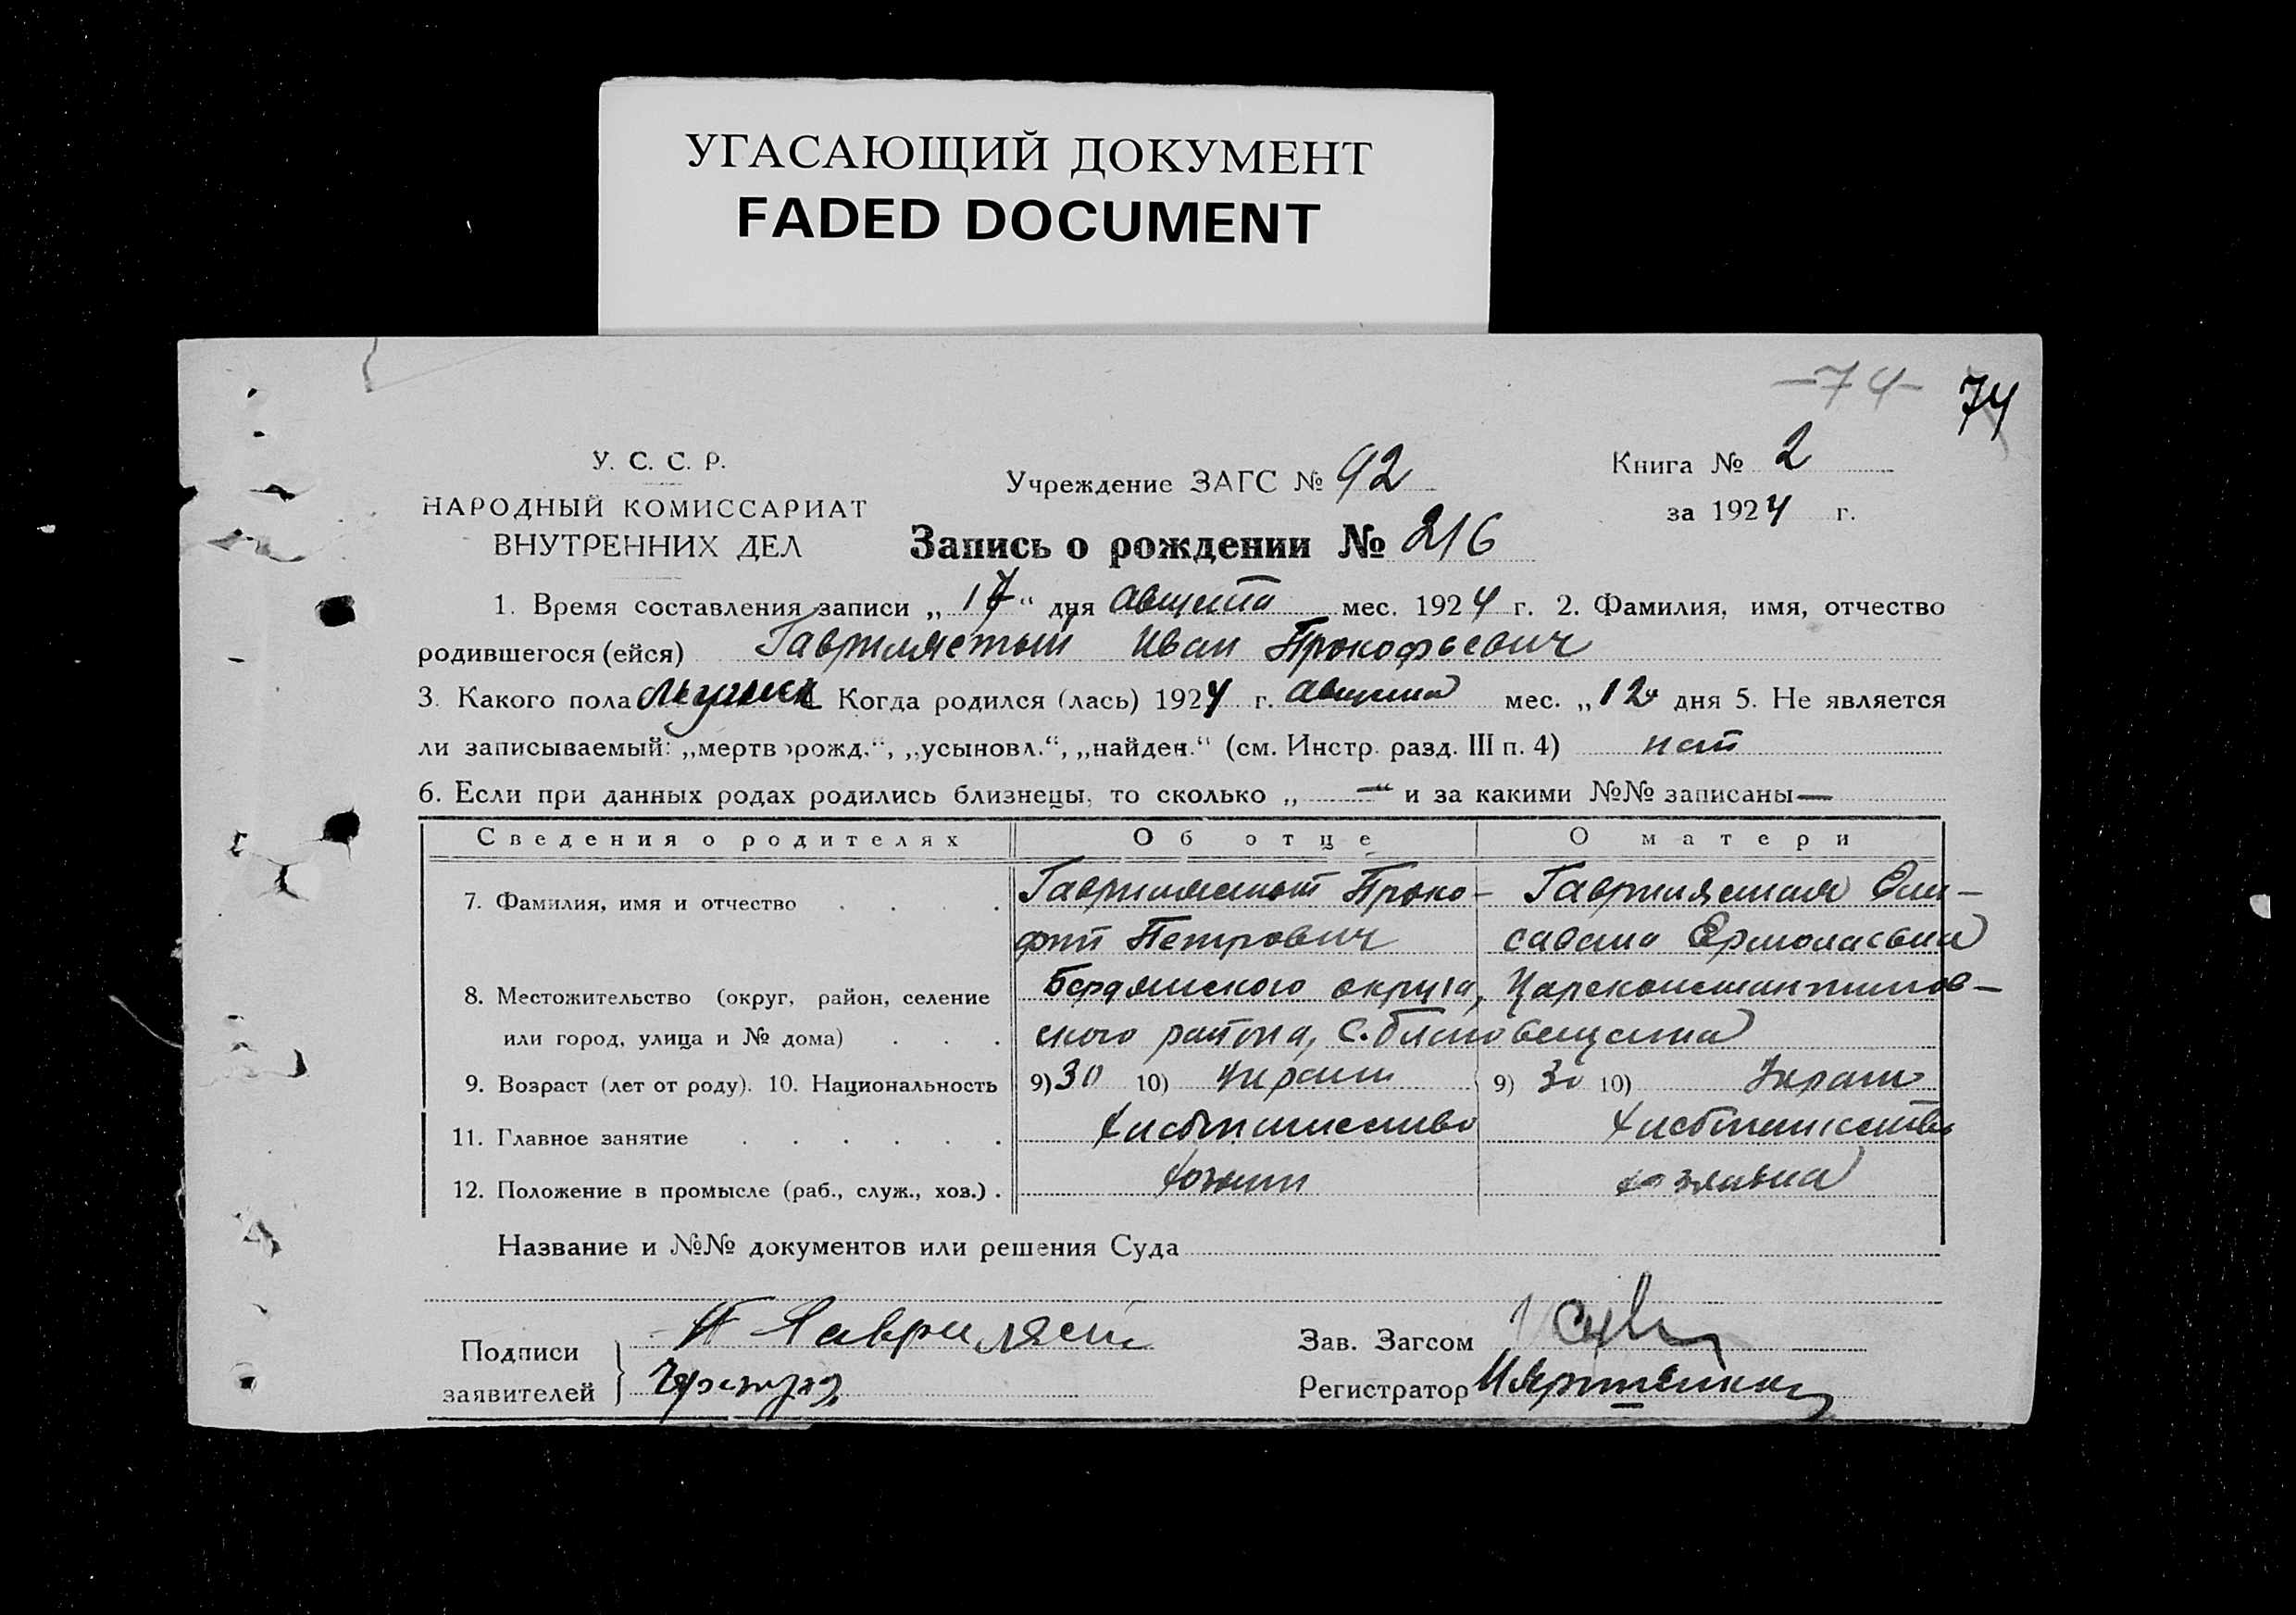 УГАСАЮЩИЙ ДОКУМЕНТ
FADED DOCUMENT
-74- 74
У. С. С. Р.
НАРОДНЫЙ КОМИССАРИАТ
ВНУТРЕННИХ ДЕЛ
Учреждение ЗАГС № 92
Книга № 2
за 1924 г.
Запись о рождении № 216
1. Время составления записи „17“ дня августа мес. 1924 г. 2. Фамилия, имя, отчество
родившегося (ейся) Гаврилястый Иван Прокофьевич
3. Какого пола мужск Когда родился (лась) 1924 г. августа мес. „12 дня 5. Не является
ли записываемый: „мертворожд.“, „усыновл.“, „найден.“ (см. Инстр. разд. III п. 4) нет
6. Если при данных родах родились близнецы, то сколько „ —“ и за какими №№ записаны —
Сведения о родителях Об отце О матери
7. Фамилия, имя и отчество . . . . Гаврилястый Проко- Гаврилястая Ели-
фий Петрович савета Ермолаевна
8. Местожительство (округ, район, селение Бердянского округа, Цареконстантинов-
или город, улица и № дома) . . . ского района, с. Благовещенка
9. Возраст (лет от роду). 10. Национальность 9) 30 10) Украин 9) 30 10) Украин
11. Главное занятие . . . . . . Хлебопашество Хлебопашество
12. Положение в промысле (раб., служ., хоз.) . Хозяин хозяйка
Название и №№ документов или решения Суда
Подписи
заявителей
П Гаврилясты
Зав. Загсом
Регистратор